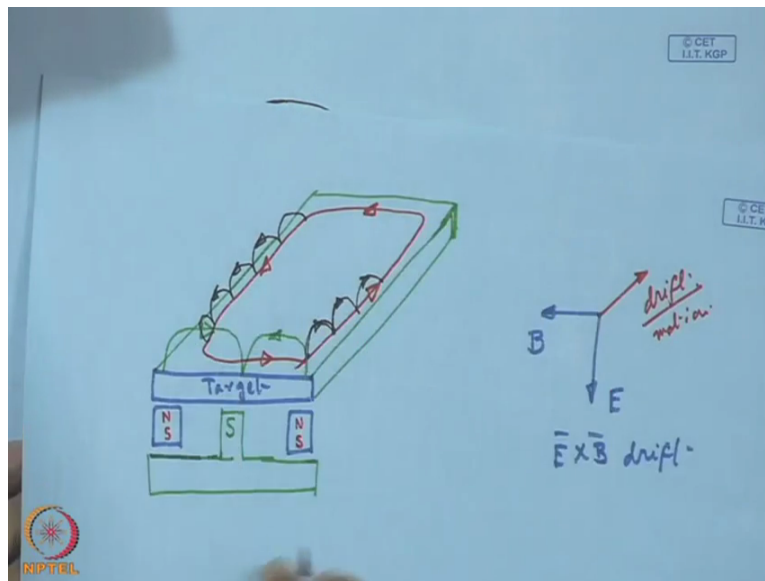 © CET
I.I.T. KGP
© CE
I.I.T. K
Target
N
S
S
N
S
B
E
drift
motion
E X B drift
NPTEL